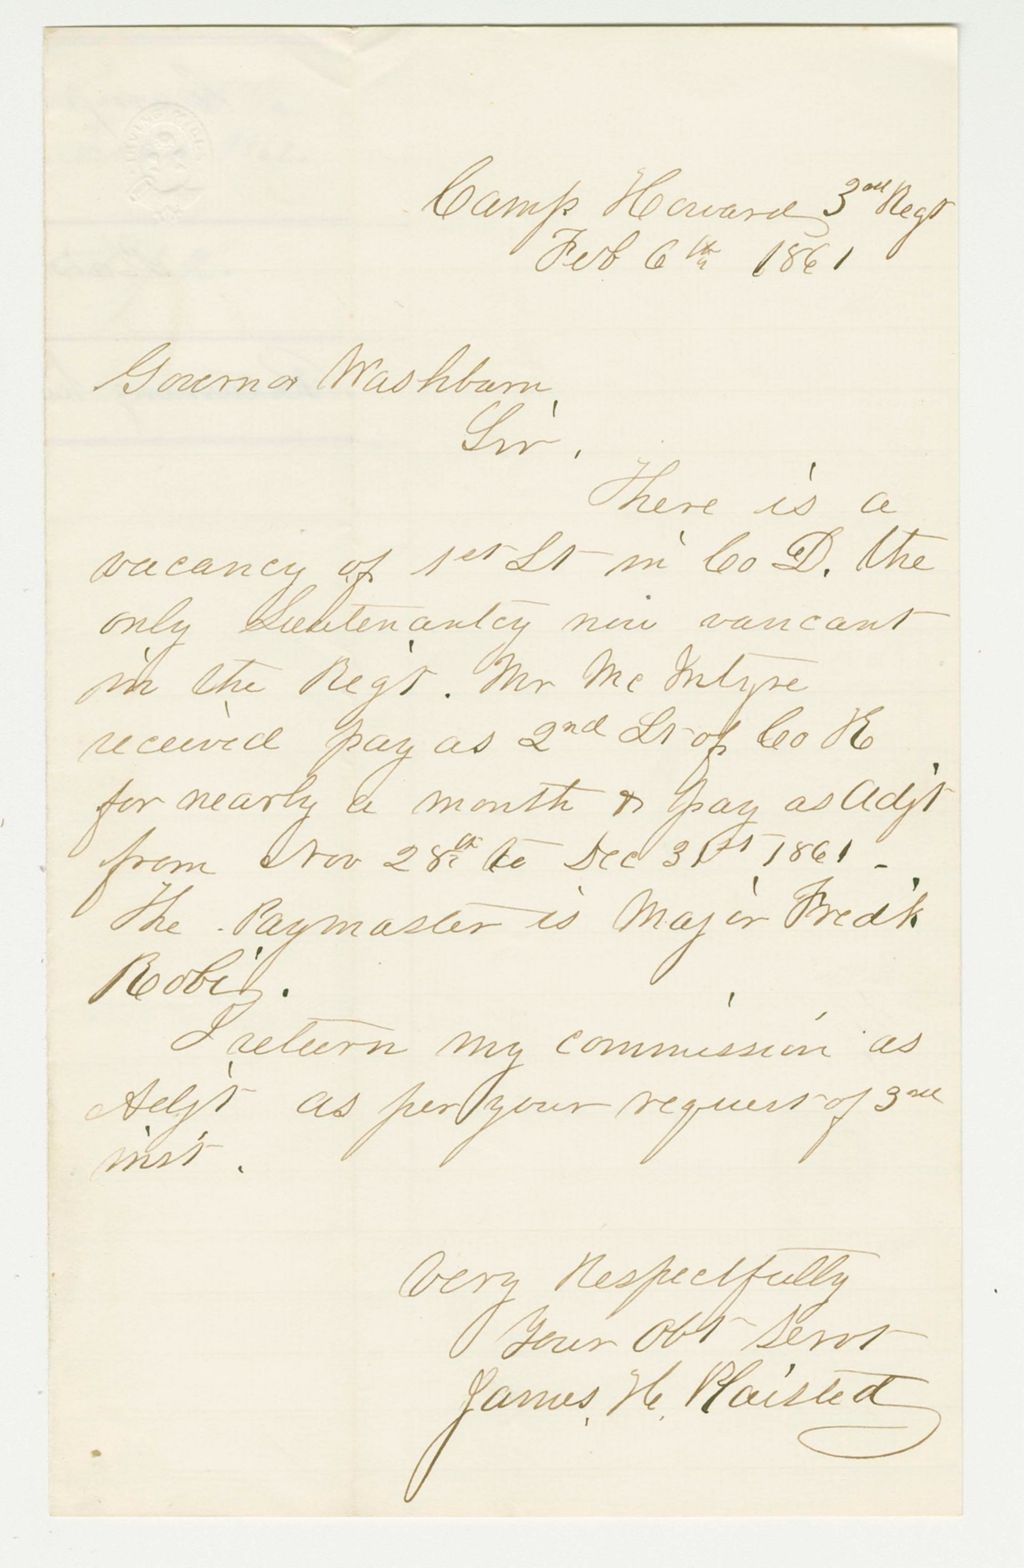 Camp Howard 3rd Regt
Feb 6th 1861
Governor Washburn,
Sir,
There is a
vacancy of 1st Lt in Co D. the
only Lieutenantcy now vancant
in the Reg't. Mr McIntyre
received pay as 2nd Lt of Co K
for nearly a month & pay as Adj't
from Nov 28th to Dec 31st 1861 -
The Paymaster is Major Fred'k
Robie.
I return my commission as
Adj't as per your request of 3rd
inst.
Very Respectfully
Your Obt Servt
James. H. Plaisted